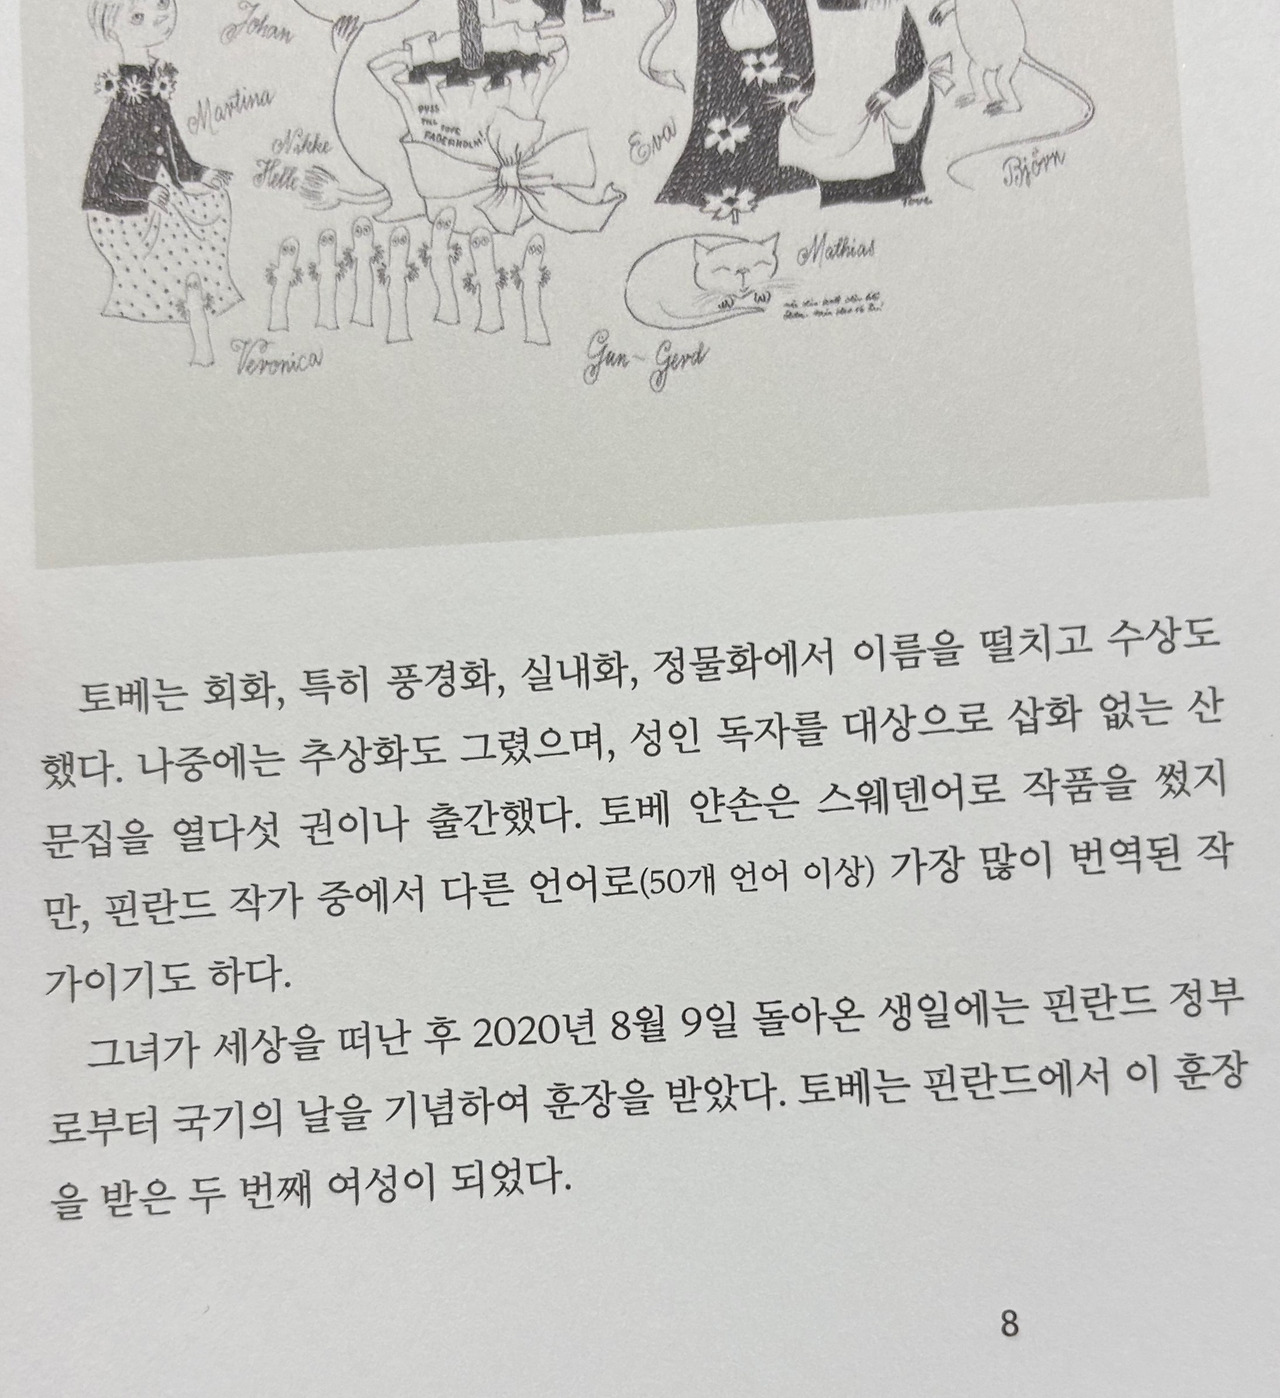 Johan
Martina
Nikke
Helle
PUSS
TILL TOVE
FAGERHOLM!
Eva
Björn
Tove
Mathias
Veronica
Gun-Gerd
토베는 회화, 특히 풍경화, 실내화, 정물화에서 이름을 떨치고 수상도
했다. 나중에는 추상화도 그렸으며, 성인 독자를 대상으로 삽화 없는 산
문집을 열다섯 권이나 출간했다. 토베 얀손은 스웨덴어로 작품을 썼지
만, 핀란드 작가 중에서 다른 언어로(50개 언어 이상) 가장 많이 번역된 작
가이기도 하다.
그녀가 세상을 떠난 후 2020년 8월 9일 돌아온 생일에는 핀란드 정부
로부터 국기의 날을 기념하여 훈장을 받았다. 토베는 핀란드에서 이 훈장
을 받은 두 번째 여성이 되었다.
8